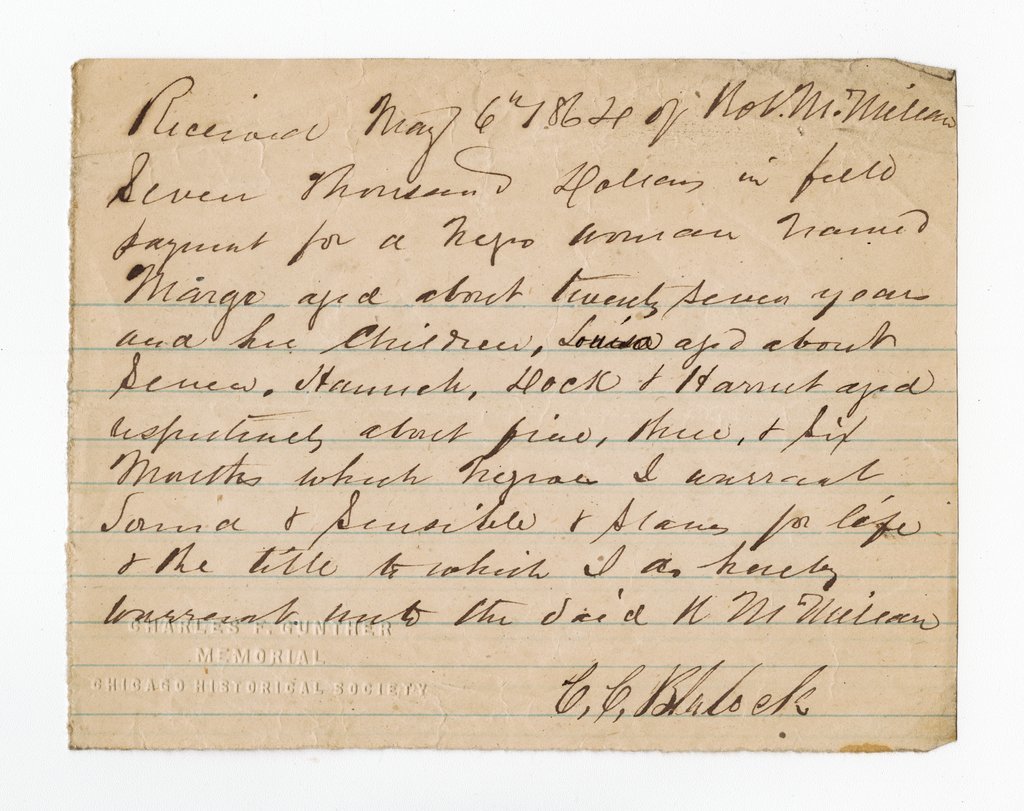 Received May 6th 1864 of Rob. McMillan
Seven Thousand Dollars in full
payment for a Negro woman named
Marge aged about twenty seven years
and her Children, Louisa aged about
Seven, Hannah, Dock & Harriet aged
respectively about five, three, & six
Months which Negroes I warrant
Sound & Sensible & Slaves for life
& the title to which I do hereby
warrant unto the said R McMillan
CHARLES F. GUNTHER
MEMORIAL
CHICAGO HISTORICAL SOCIETY
C. C. Blalock